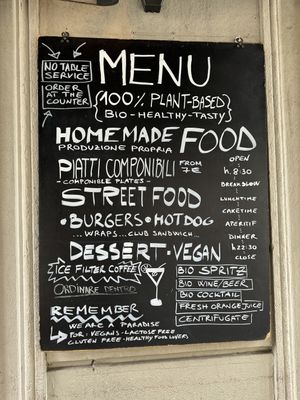 NO TABLE
SERVICE
ORDER
AT THE
COUNTER
MENU
100% PLANT-BASED
BIO - HEALTHY - TASTY
HOMEMADE FOOD
PRODUZIONE PROPRIA
PIATTI COMPONIBILI FROM 7€
- COMPONIBLE PLATES -
STREET FOOD
• BURGERS • HOTDOG
... WRAPS... CLUB SANDWICH...
DESSERT • VEGAN
OPEN
h. 8:30
LUNCHTIME
CAKETIME
APERITIF
DINNER
h 22:30
CLOSE
ICE FILTER COFFEE
ORDINARE DENTRO
REMEMBER
WE ARE A PARADISE
FOR: VEGANS - LACTOSE FREE
GLUTEN FREE - HEALTHY FOOD LOVERS
BIO SPRITZ
BIO WINE/BEER
BIO COCKTAIL
FRESH ORANGE JUICE
CENTRIFUGATE